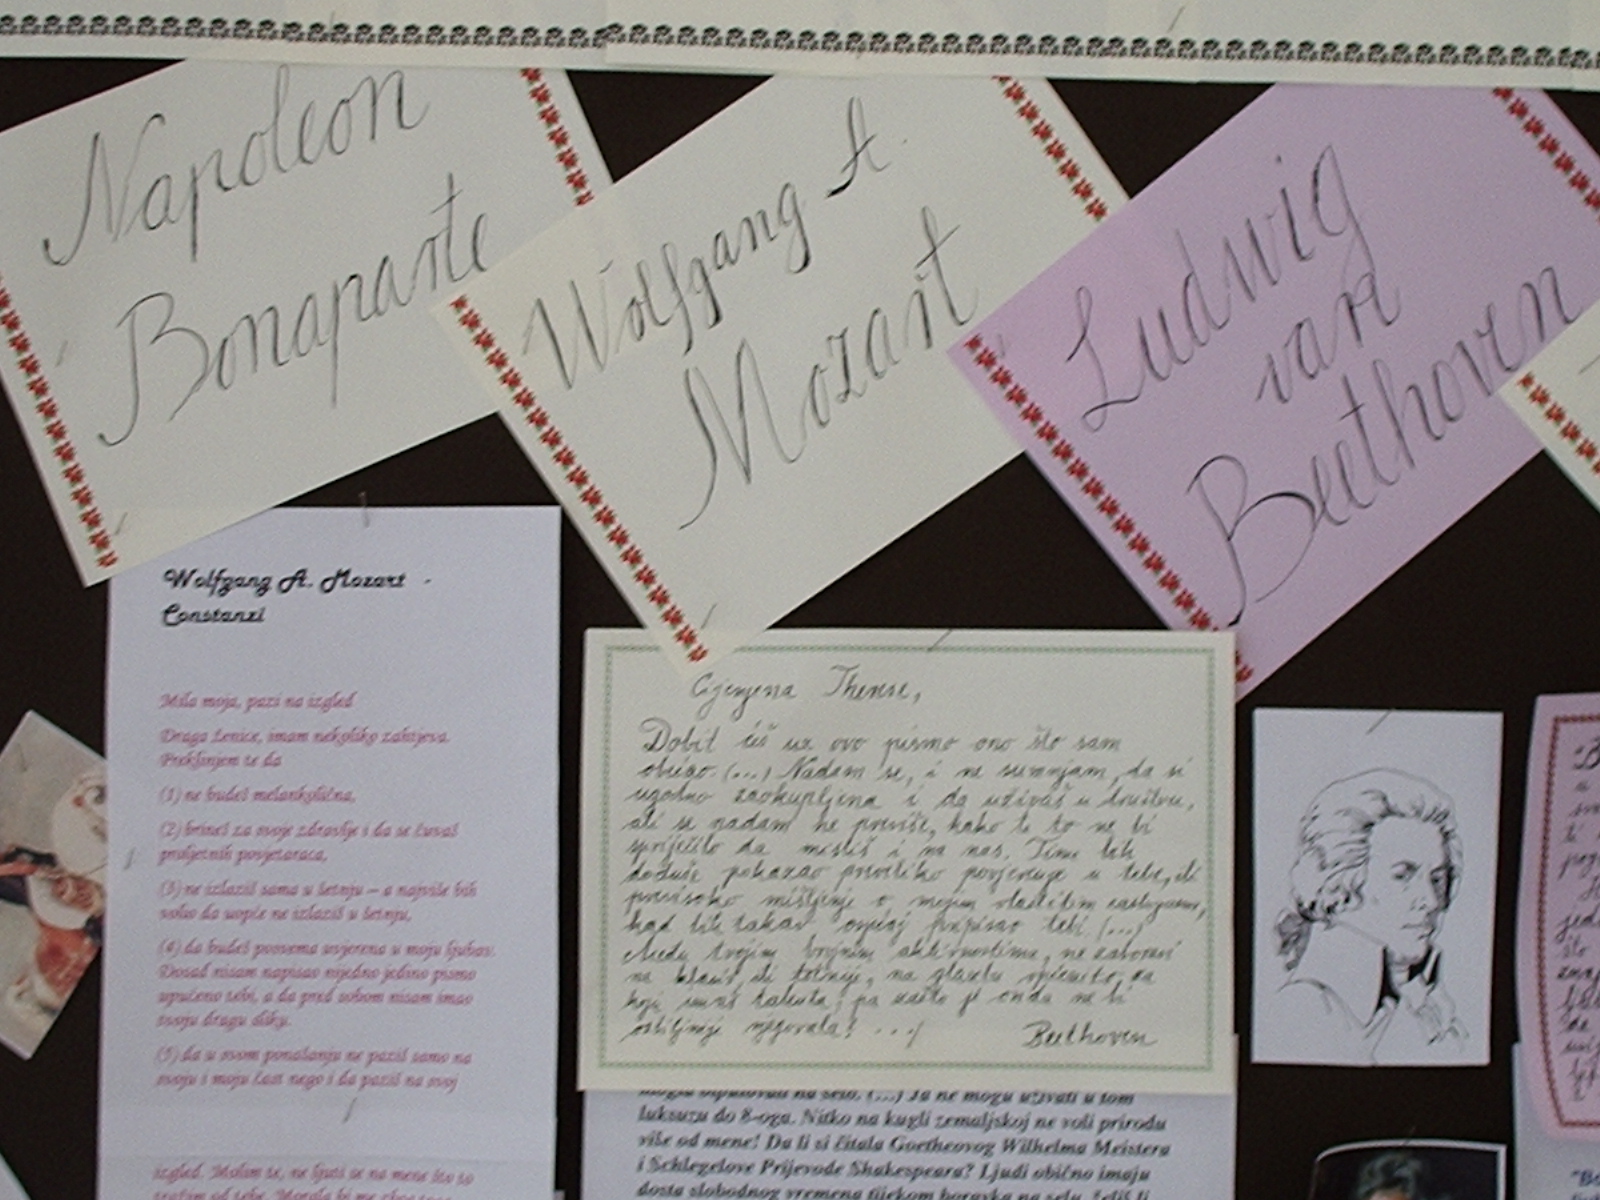 Napoleon
Bonaparte
Wolfgang A.
Mozart
Ludwig
van
Beethoven
Wolfgang A. Mozart -
Constanzi
Mila moja, pazi na izgled
Draga ženice, imam nekoliko zahtjeva.
Preklinjem te da
(1) ne budeš melankolična,
(2) brineš za svoje zdravlje i da se čuvaš
proljetnih povjetaraca,
(3) ne izlaziš sama u šetnju – a najviše bih
volio da uopće ne izlaziš u šetnju,
(4) da budeš posvema uvjerena u moju ljubav.
Dosad nisam napisao nijedno jedino pismo
upućeno tebi, a da pred sobom nisam imao
tvoju dragu sliku.
(5) da u svom ponašanju ne paziš samo na
svoju i moju čast nego i da paziš na svoj
izgled. Molim te, ne ljuti se na mene što to
tražim od tebe.
Cijenjena Therese,
Dobit ćeš uz ovo pismo ono što sam
obećao. (...) Nadam se, i ne sumnjam, da si
ugodno zaokupljena i da uživaš u društvu,
ali se nadam ne previše, kako te to ne bi
spriječilo da misliš i na nas. Time bih
doduše pokazao preveliko povjerenje u tebe, ili
previsoko mišljenje o mojim vlastitim zaslugama,
kad bih takav osjećaj pripisao tebi. (...)
Među tvojim brojnim aktivnostima, ne zaboravi
na klavir, ili točnije, na glazbu općenito, za
koju imaš talenta, pa zašto je onda ne bi
ozbiljnije njegovala? ...
Beethoven
na selo. (...) Ja ne mogu uživati u tom
luksuzu do 8-oga. Nitko na kugli zemaljskoj ne voli prirodu
više od mene! Da li si čitala Goetheovog Wilhelma Meistera
i Schlegelove Prijevode Shakespeara? Ljudi obično imaju
dosta slobodnog vremena tijekom boravka na selu.